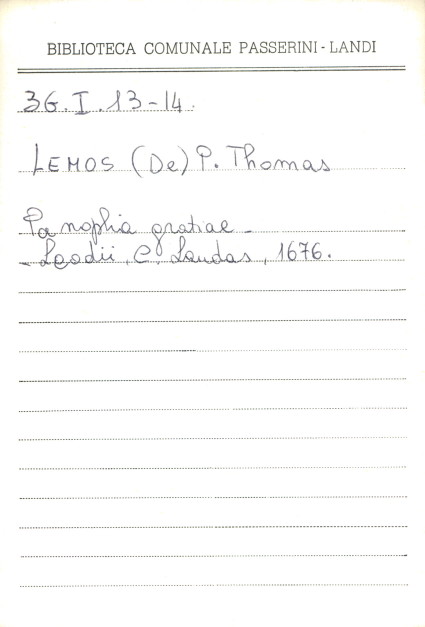 BIBLIOTECA COMUNALE PASSERINI-LANDI
3G.I.13-14.
LEMOS (De) P. Thomas
Panophia gratiae -
- Leodii, C. Landas, 1676.